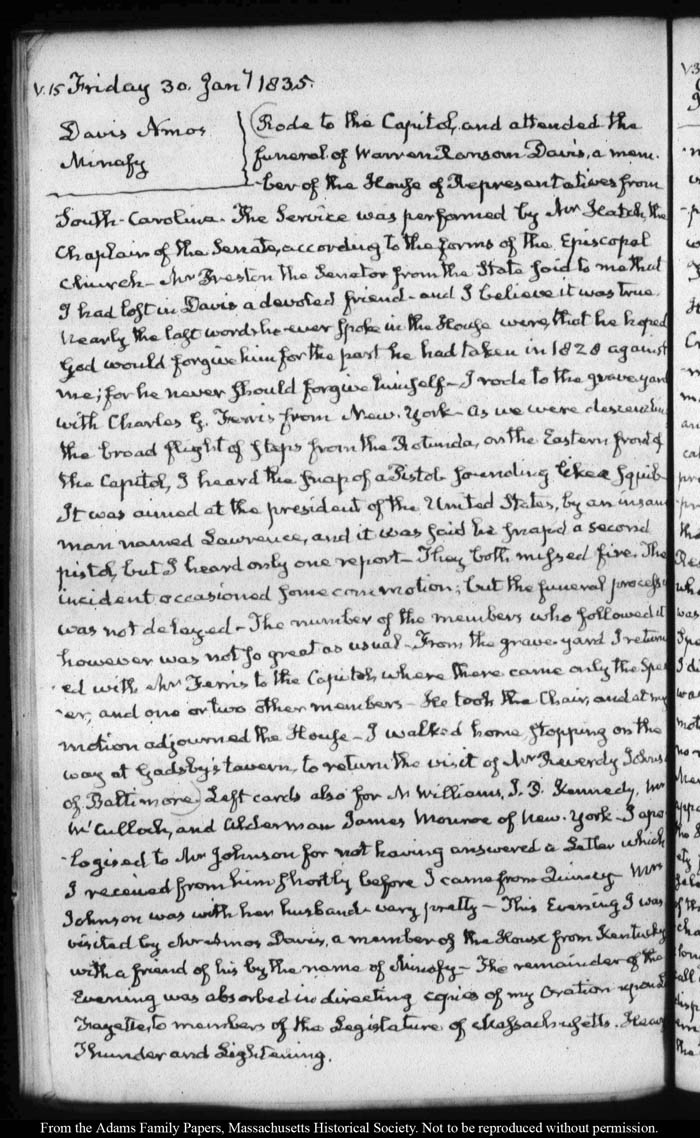 V.15 Friday 30. Jany 1835.
Davis Amos
Minafy
Rode to the Capitol, and attended the
funeral of Warren Ransom Davis, a mem-
-ber of the House of Representatives from
South-Carolina. The Service was performed by Mr Hatch, the
Chaplain of the Senate, according to the forms of the Episcopal
Church - Mr Preston the Senator from the State said to me that
I had lost in Davis a devoted friend - and I believe it was true.
Nearly the last words he ever spoke in the House were, that he hoped
God would forgive him for the part he had taken in 1828 against
me; for he never should forgive himself - I rode to the grave yard
with Charles G. Ferris from New-York - As we were descending
the broad flight of steps from the Rotunda, on the Eastern front of
the Capitol, I heard the snap of a Pistol sounding like a squib -
It was aimed at the president of the United States, by an insane
man named Lawrence, and it was said he snaped a second
pistol, but I heard only one report - They both missed fire. The
incident occasioned some commotion; but the funeral process
was not delayed - The number of the members who followed it
however was not so great as usual - From the grave-yard I return
-ed with Mr Ferris to the Capitol, where there came only the Spe
-er, and one or two other members - He took the Chair, and at my
motion adjourned the House - I walked home, stopping on the
way at Gadsby's tavern, to return the visit of Mr Reverdy Johns
of Baltimore. Left cards also for N Williams, J. P. Kennedy, Mr
McCulloch, and Alderman James Monroe of New-York - I apo
-logised to Mr Johnson for not having answered a Letter which
I received from him shortly before I came from Quincy - Mrs
Johnson was with her husband - very pretty - This Evening I was
visited by Mr Amos Davis, a member of the House from Kentucky
with a friend of his by the name of Minafy - The remainder of the
Evening was absorbed in directing copies of my Oration upon L
Fayette, to members of the Legislature of Massachusetts. Heavy
Thunder and Lightening.
From the Adams Family Papers, Massachusetts Historical Society. Not to be reproduced without permission.